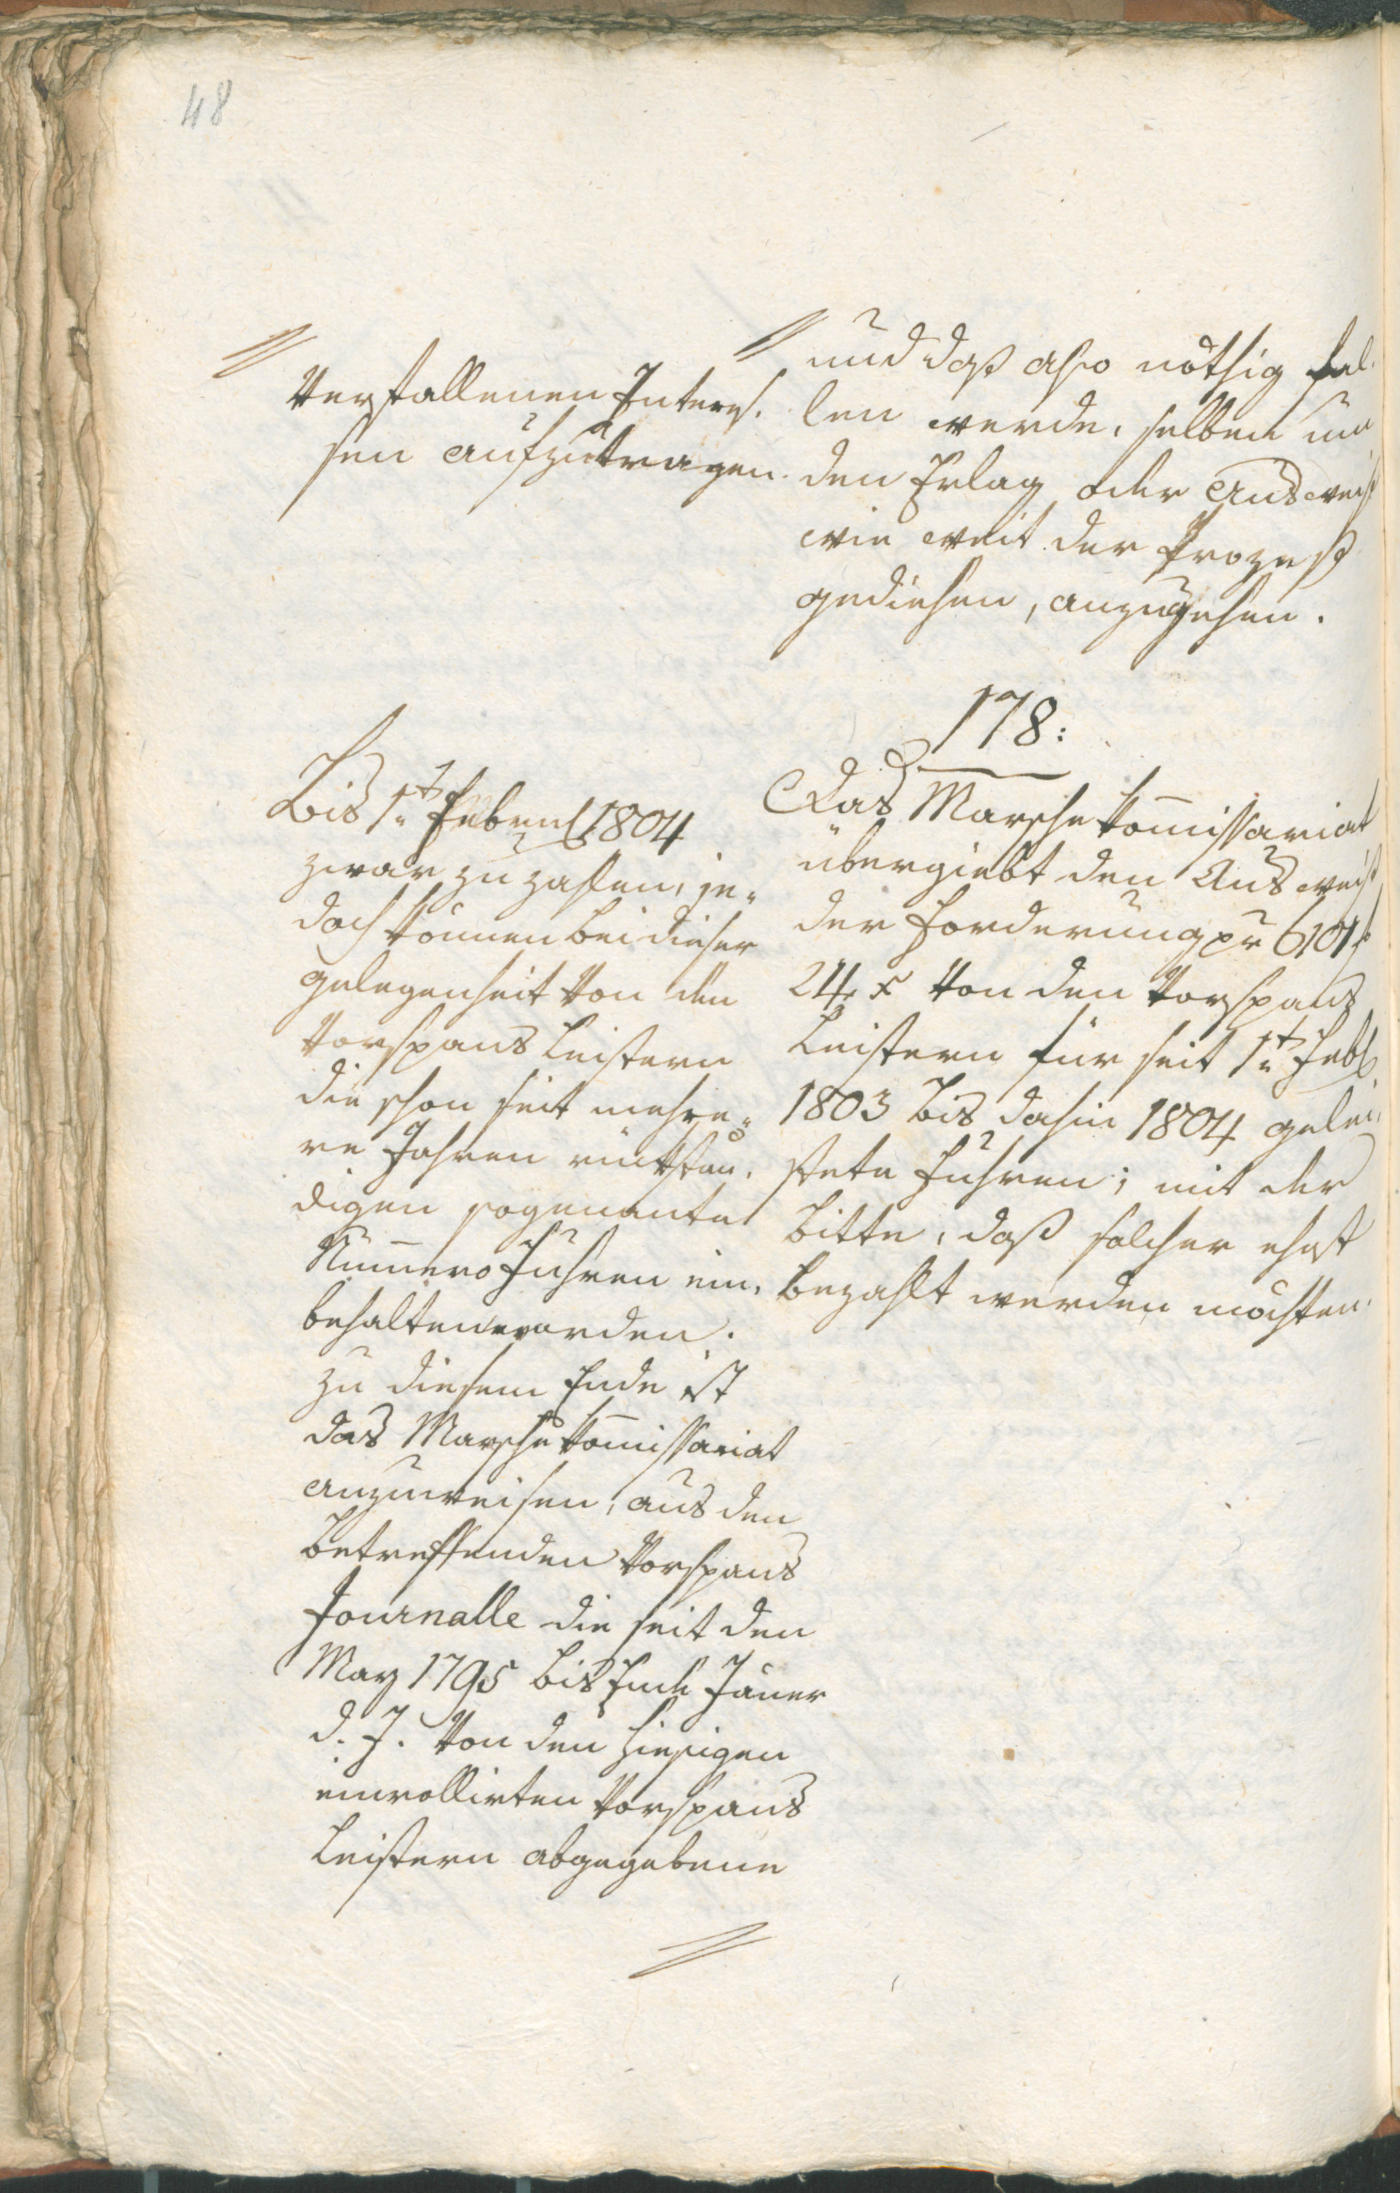 48
verfallenen Interes-
sen aufzutragen.
und daß also nöthig fal-
len werde, selben um
den Erlag oder Ausweis
wie weit der Prozeß
gediehen, anzugehen.
178:
Bis 1t Feber 1804
zwar zu zahlen, je-
doch können bei dieser
gelegenheit von den
Vorspans Leistern
die schon seit mehre-
re Jahren rükstän-
digen sogenante
Numero Fuhren ein-
behalten werden.
zu diesem Ende ist
das Marsche Kommissariat
anzuweisen, aus den
betreffenden Vorspans
Journalle die seit den
May 1795 bis Ende Jäner
d. J. von den hiesigen
einrollirten Vorspans
Leistern abgegebene
Das Marsche Kommissariat
übergiebt den Ausweis
der Forderung pr 6101 f
24 x von den Vorspans
Leistern für seit 1t Feb
1803 bis dahin 1804 gelei-
stete Fuhren; mit der
Bitte, daß solcher ehest
bezahlt werden möchten.